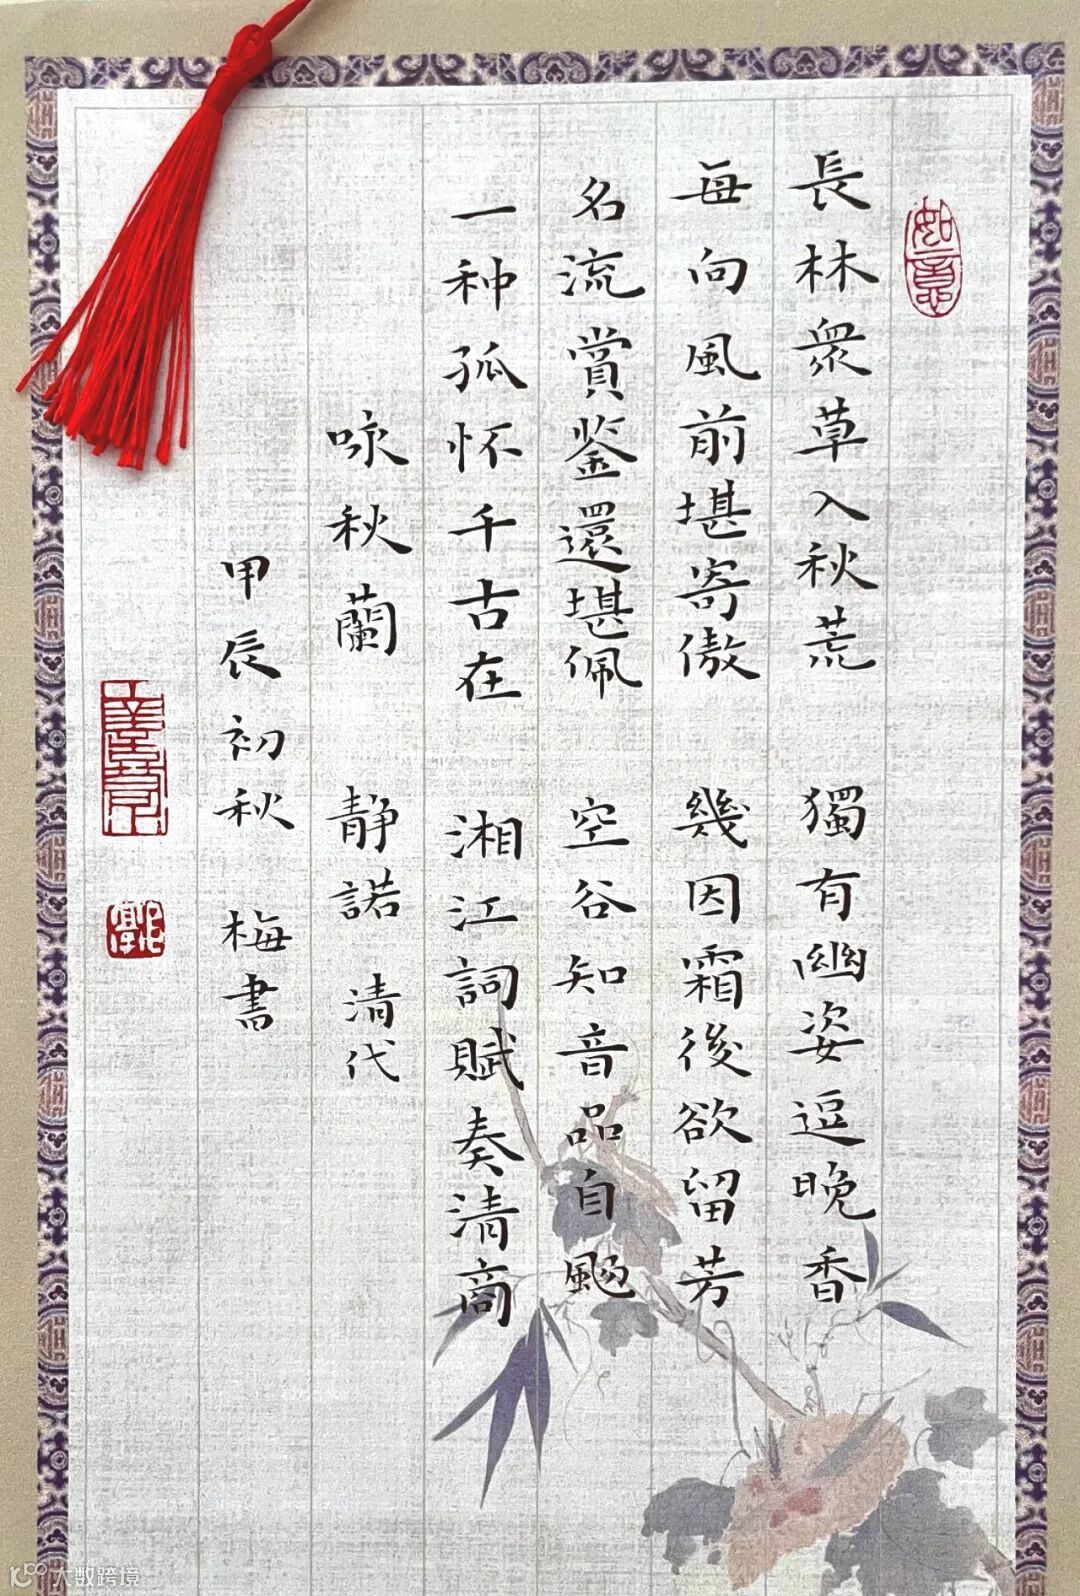 如意
長林衆草入秋荒 獨有幽姿逗晚香
每向風前堪寄傲 幾因霜後欲留芳
名流賞鉴還堪佩 空谷知音品自颺
一种孤怀千古在 湘江詞賦奏清商
咏秋蘭 静諾 清代
甲辰初秋 梅書
大数跨境